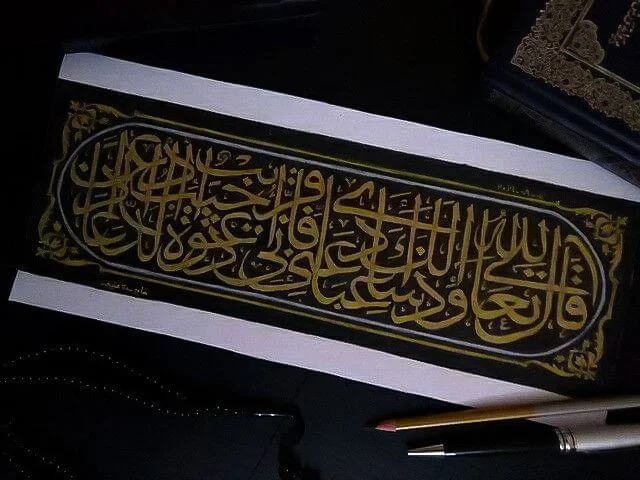 قال الله تعالى واذا سالك عبادي عني فاني قريب اجيب دعوة الداع اذا دعان